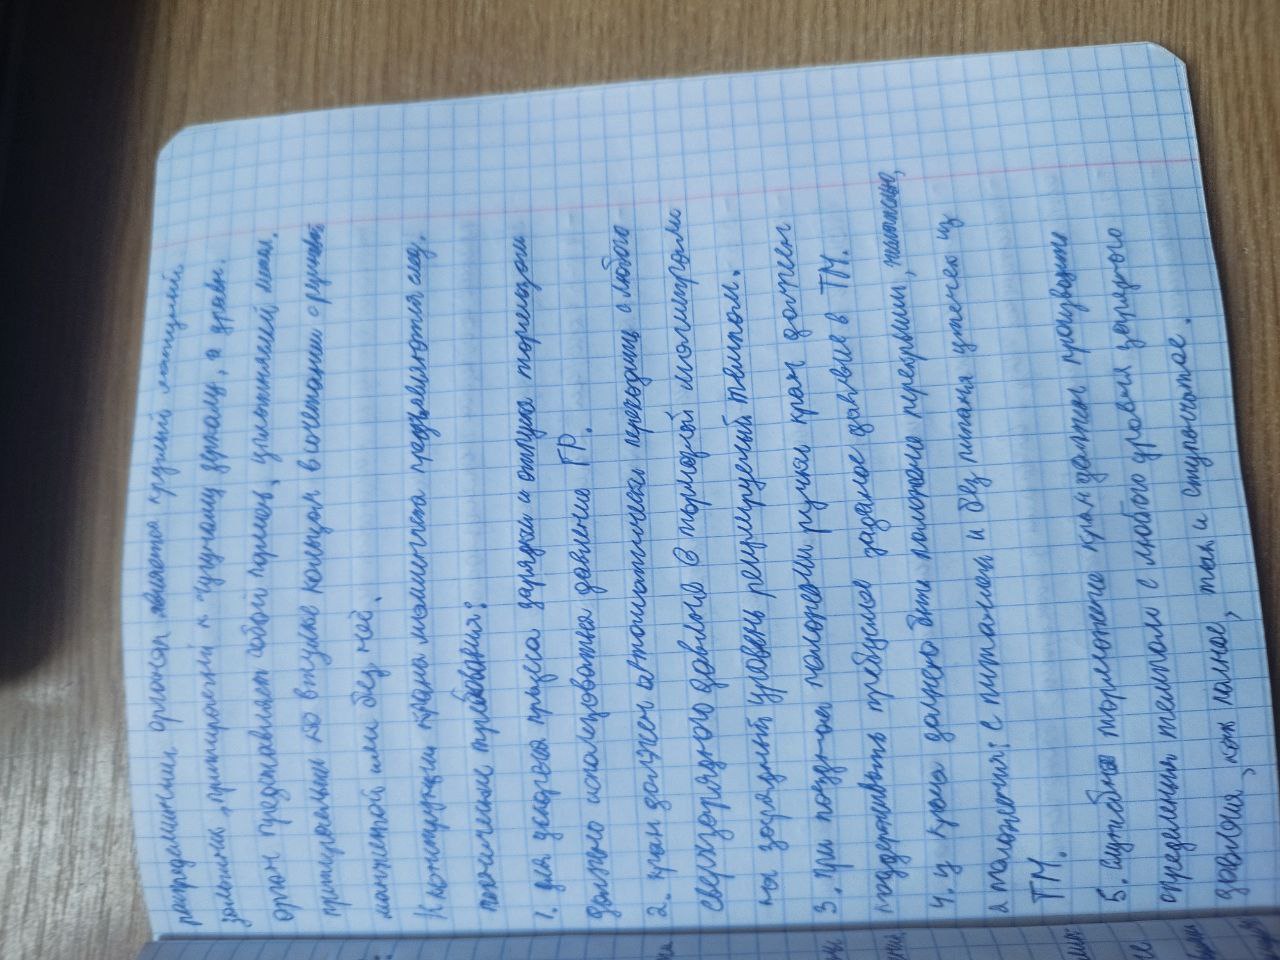 распредилитиным органом является круглый латунный
золотник, притираемый к чугунному зеркалу, а уравн.
орган представляет собой поршень, уплотняемый мет.
притираемым ко втулке кольцом в сочетании с резинов.
манжетой или без неё.
К конструкции крана машиниста предъявляются след.
технические требования:
1. для ускорения процесса зарядки и отпуска тормозов
должно использоваться давление ГР.
2. кран должен автоматически переходить с любого
сверхзарядного давления в тормозной магистрали
на зарядный уровень регулируемый темпом.
3. при поездном положении ручки кран должен
поддерживать требуемое заданное давление в ТМ.
4. у крана должно быть положение перекрыши,
2 положения: с питанием и без питания утечек из
ТМ.
5. служебное торможение кран должен производить
определенным темпом с любого уровня зарядного
давления, как полное, так и ступенчатое.